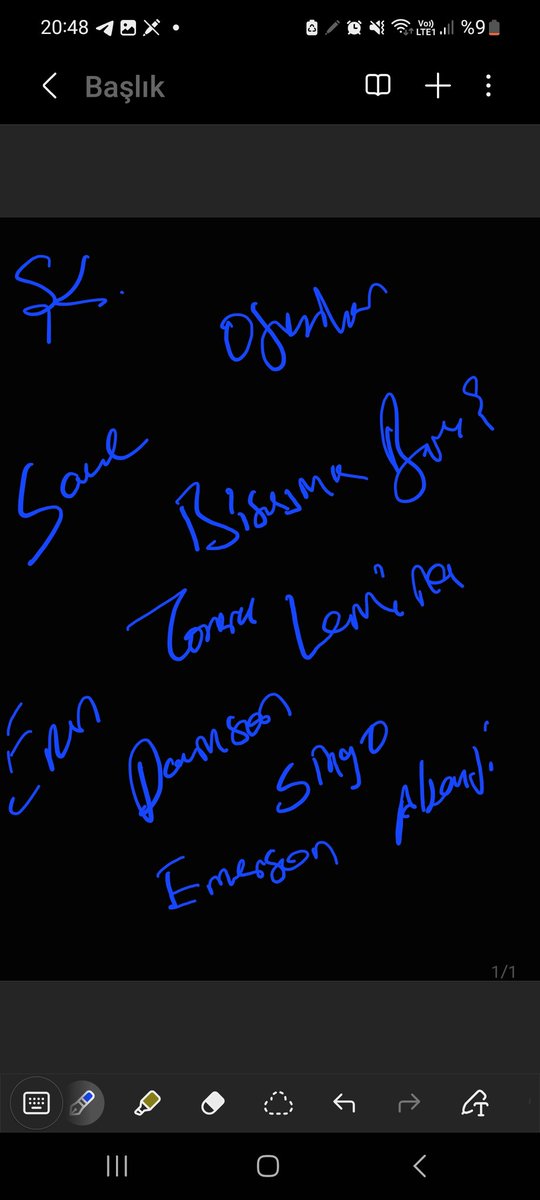 20:48 Vo)) LTE1 %9
Başlık
Oğuzhan
Sane
Bissouma Barış
Torreira Lemina
Eren Davinson Singo Akanji
Emerson
1/1